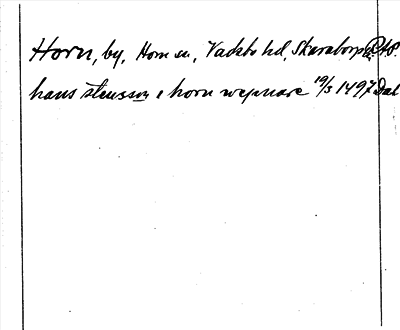 Horn, by, Horn sn, Vadsbo hd, Skaraborgs
hans stensson i horn wepnare 19/3 1497 Dal